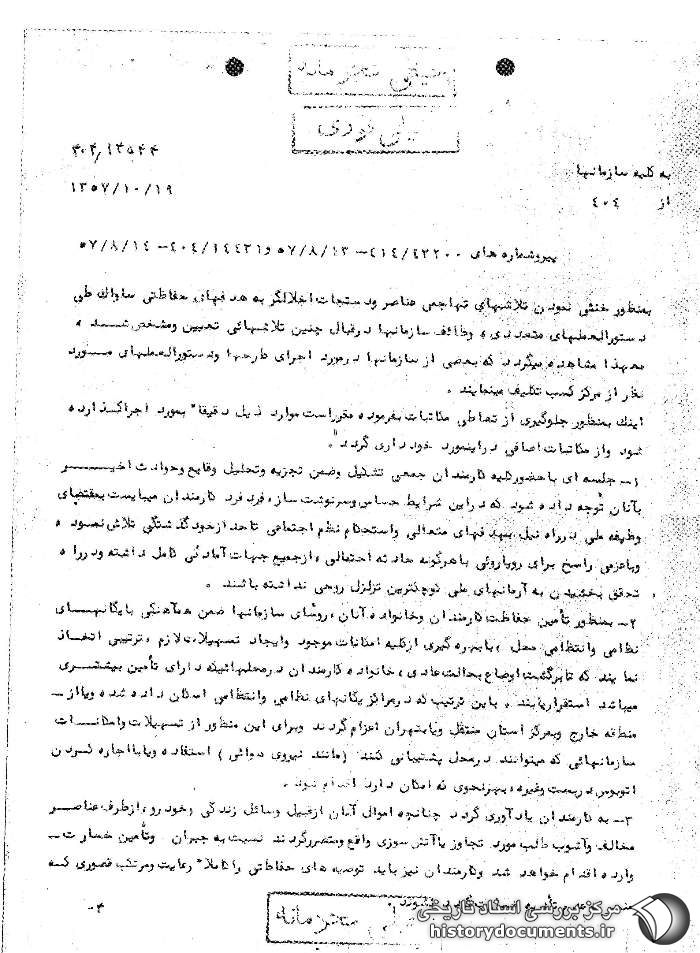 خیلی محرمانه
خیلی فوری
به کلیه سازمانها
۴۰۴/۱۴۵۴۴
از ۴۰۴
۱۳۵۷/۱۰/۱۹
پیرو شماره های ۴۱۴/۴۲۲۰۰ – ۵۷/۸/۱۳ و ۴۰۴/۱۴۴۳۱ – ۵۷/۸/۱۴
بمنظور خنثی نمودن تلاشهای تهاجمی عناصر ودستجات اخلالگر به هدفهای حفاظتی ساواک طی
دستورالعملهای متعددی، وظائف سازمانها درقبال چنین تلاشهائی تعیین ومشخص شده،
معهذا مشاهده میگردد که بعضی از سازمانها درمورد اجرای طرحها ودستورالعملهای مورد
نظر از مرکز کسب تکلیف مینمایند.
اینک بمنظور جلوگیری از تعاطی مکاتبات بفرموده مقرراست موارد ذیل دقیقا" بمورد اجرا گذارده
شود واز مکاتبات اضافی دراینمورد خودداری گردد".
۱– جلسه ای باحضورکلیه کارمندان جمعی تشکیل وضمن تجزیه وتحلیل وقایع وحوادث اخیر
بآنان توجه داده شود که دراین شرایط حساس وسرنوشت ساز، فرد فرد کارمندان میبایست بمقتضای
وظیفه ملی درراه نیل بهدفهای متعالی واستحکام نظم اجتماعی تاحد ازخودگذشتگی تلاش نموده
وباعزمی راسخ برای رویاروئی باهرگونه حادثه احتمالی، ازجمیع جهات آمادگی کامل داشته ودرراه
تحقق بخشیدن به آرمانهای ملی کوچکترین تزلزل روحی نداشته باشند.
۲– بمنظور تأمین حفاظت کارمندان وخانواده آنان، روسای سازمانها ضمن هماهنگی بایگانهای
نظامی وانتظامی محل، بابهره گیری ازکلیه امکانات موجود وایجاد تسهیلات لازم، ترتیبی اتخاذ
نمایند که تابرگشت اوضاع بحالت عادی، خانواده کارمندان درمحلهائیکه دارای تأمین بیشتری
میباشد استقراریابند. باین ترتیب که درمراکز یگانهای نظامی وانتظامی اسکان داده شده ویااز
منطقه خارج وبمرکز استان منتقل ویابتهران اعزام گردند وبرای این منظور از تسهیلات وامکانات
سازمانهائی که میتوانند درمحل پشتیبانی کنند (مانند نیروی هوائی) استفاده ویابااجاره نمودن
اتوبوس دربست وغیره، بهرنحوی که امکان دارد اقدام شود.
۳– به کارمندان یادآوری گردد چنانچه اموال آنان ازقبیل وسائل زندگی، خودرو، ازطرف عناصر
مخالف وآشوب طلب مورد تجاوز یاآتش سوزی واقع ومتضررگردند نسبت به جبران وتأمین خسارت
وارده اقدام خواهد شد وکارمندان نیز باید توصیه های حفاظتی راکاملا" رعایت ومرتکب قصوری که
خیلی محرمانه
مرکز بررسی اسناد تاریخی
historydocuments.ir